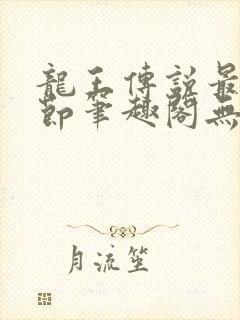 龍王傳說最
節筆趣閣無
月流笙